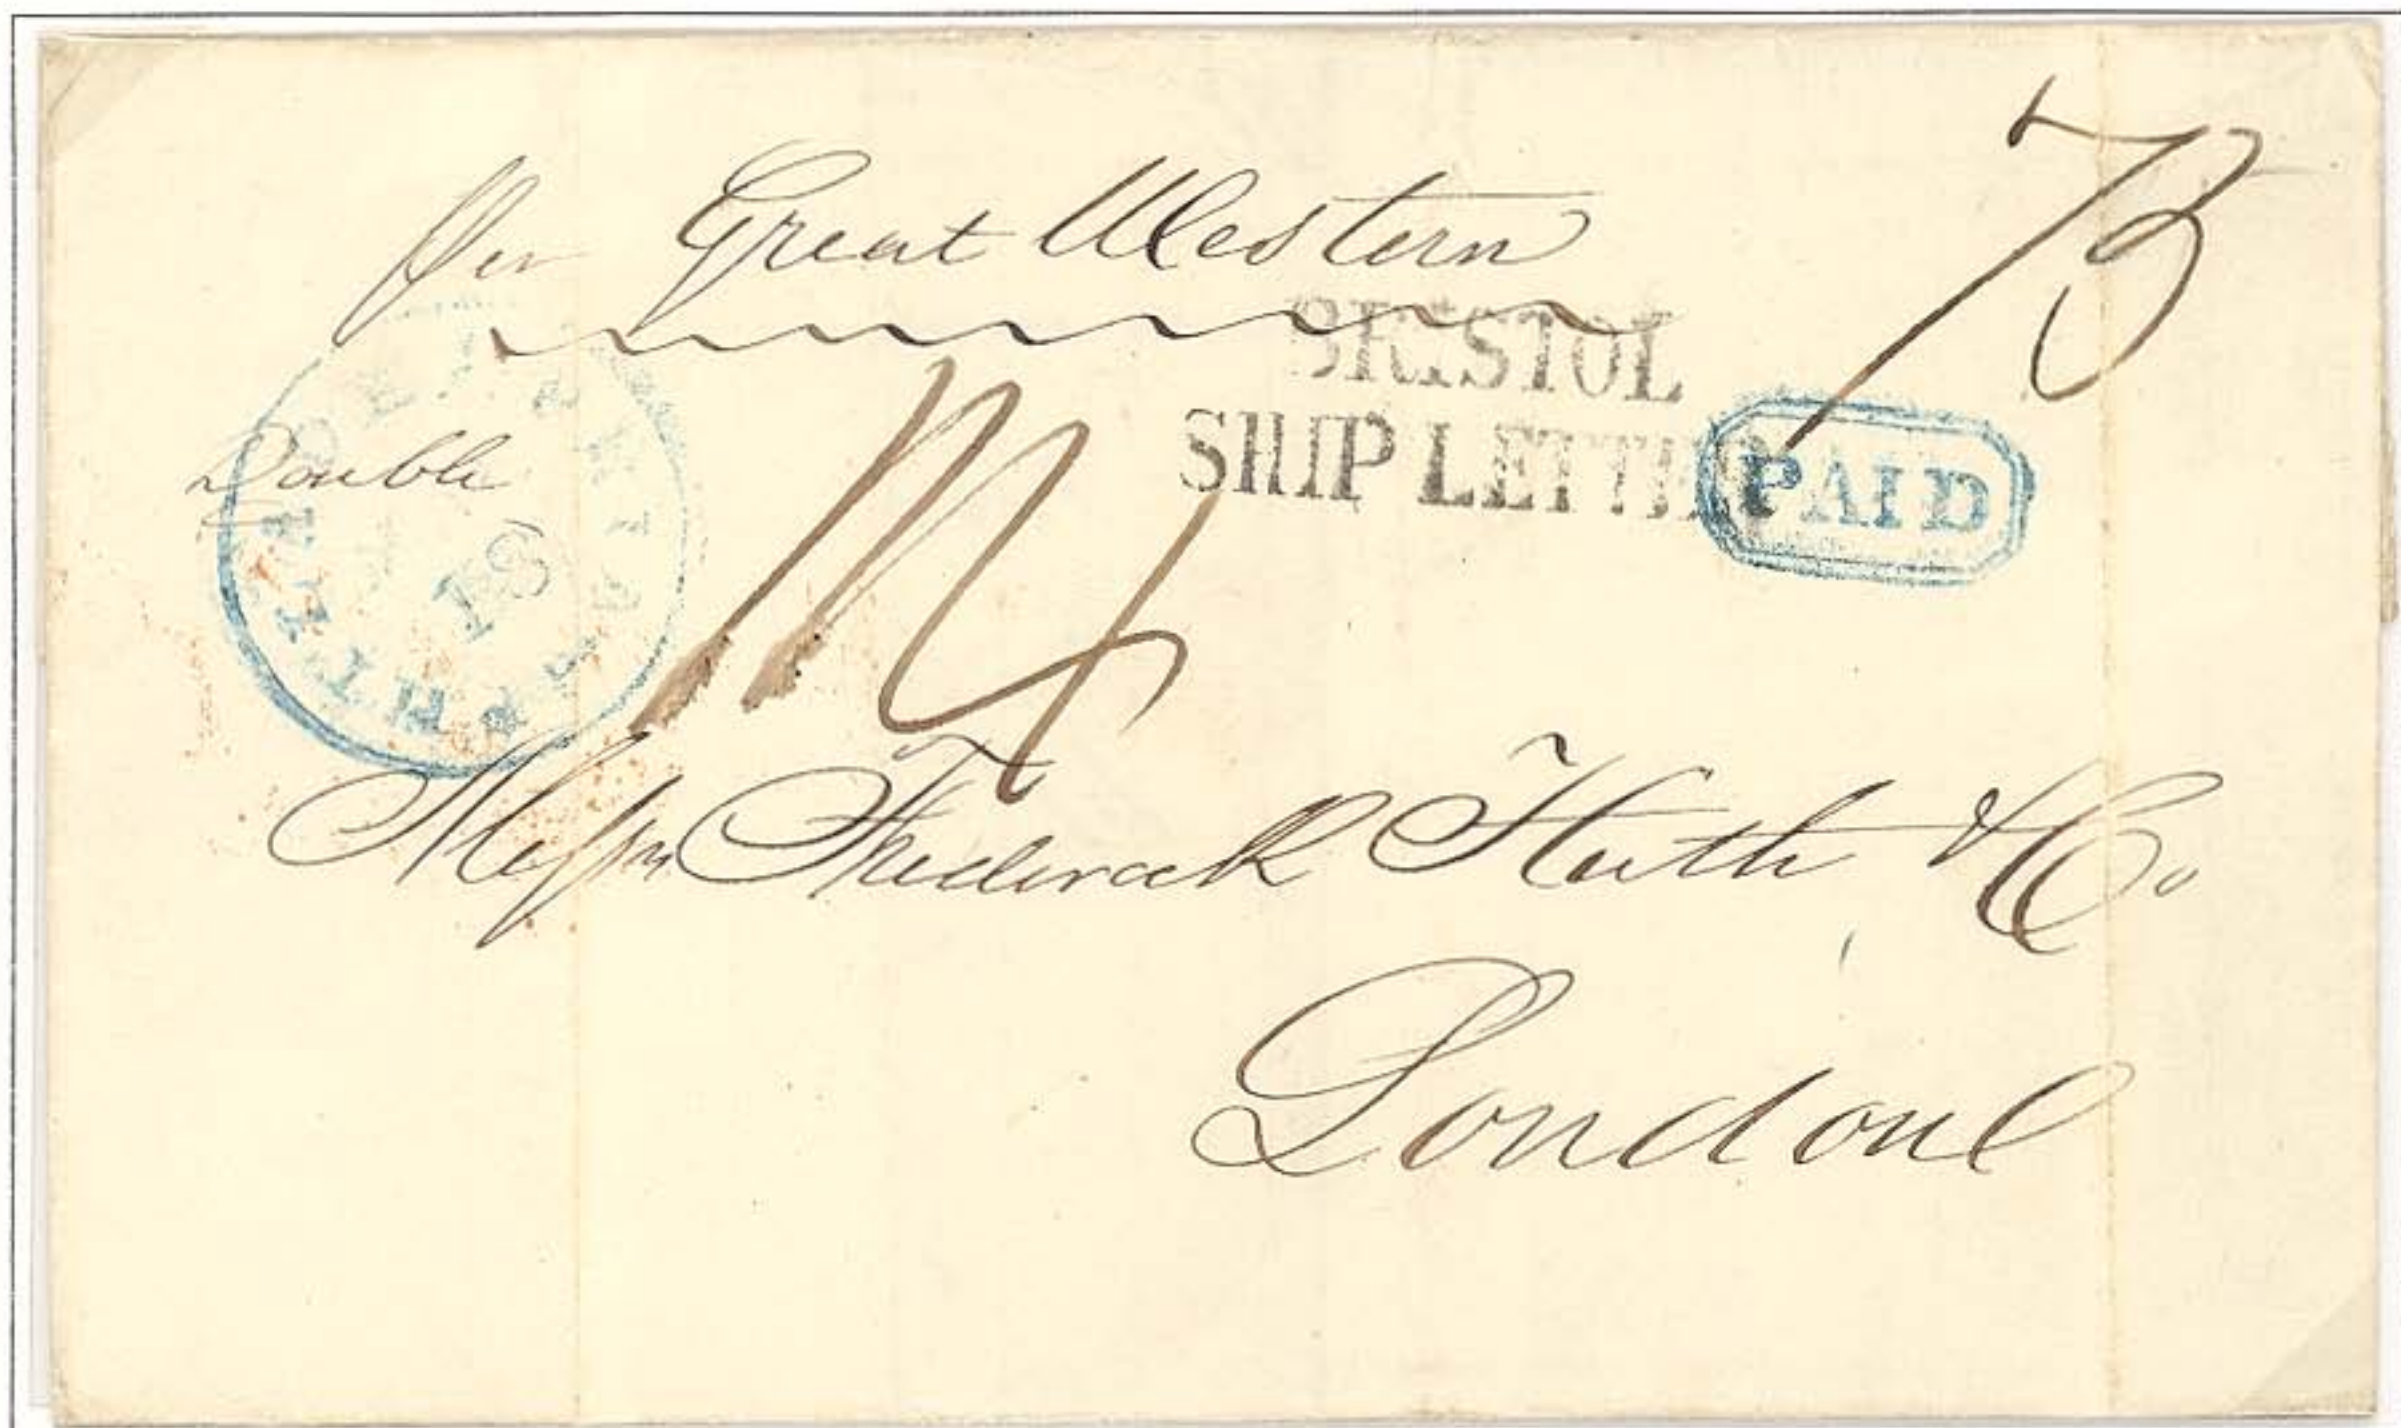 per Great Western
75
BRISTOL
SHIP LETTER
PAID
Double
PHILADELPHIA
18
Messrs Frederick Huth & Co
London